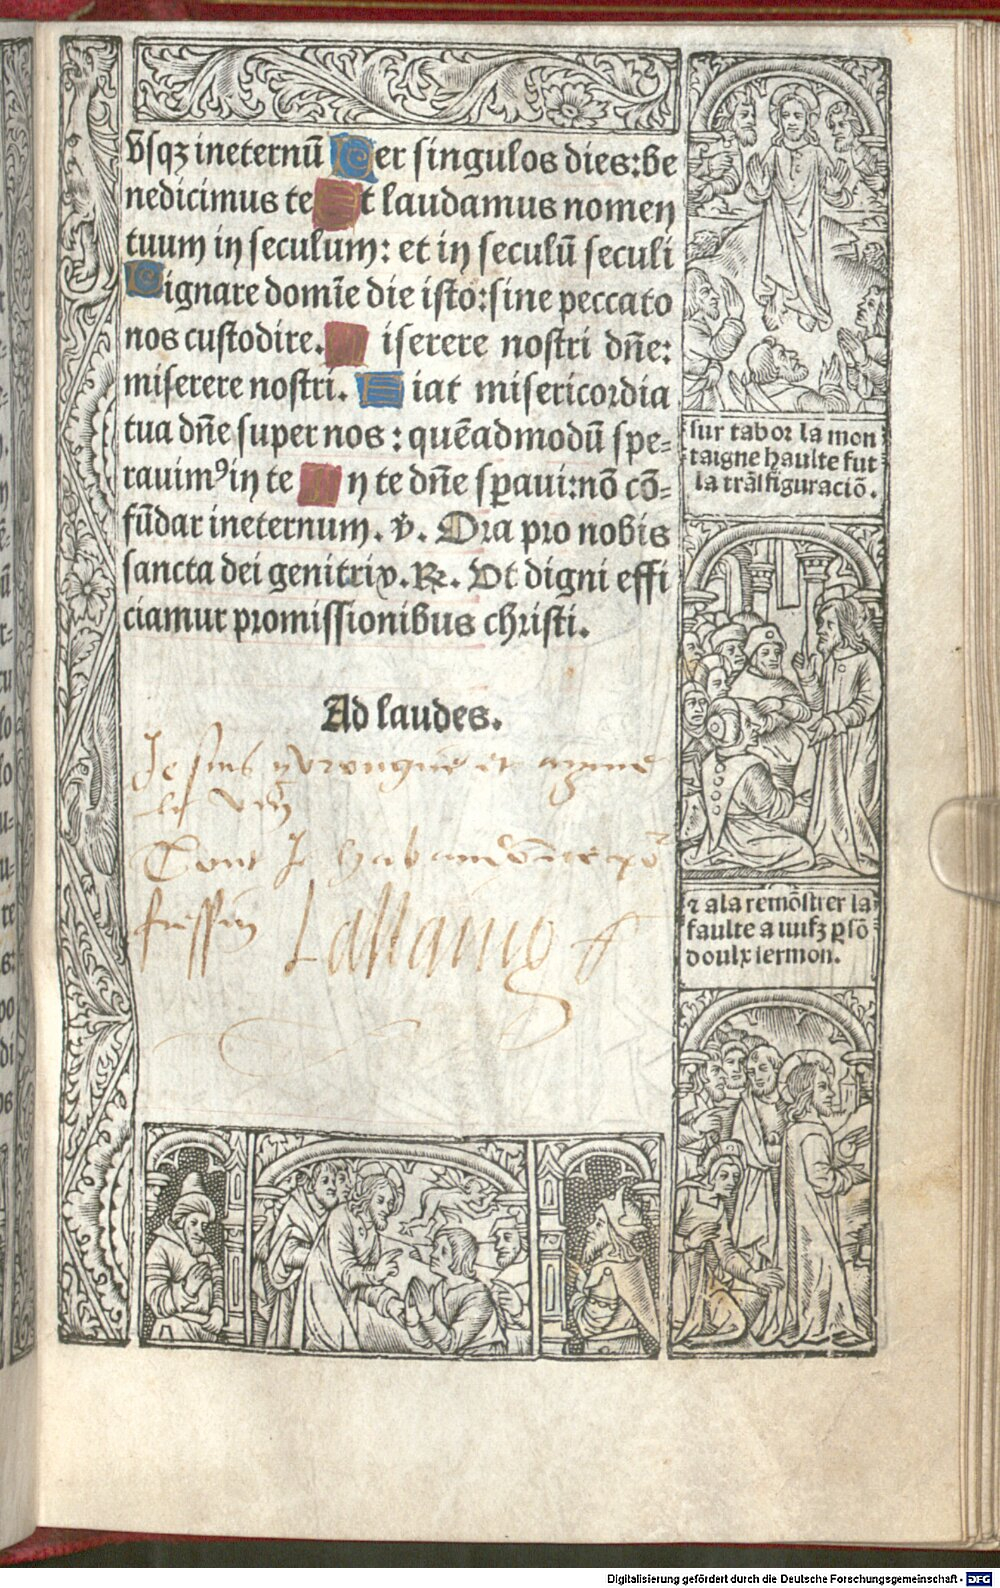 vsqꝫ ineternū Per singulos dies: be
nedicimus te Et laudamus nomen
tuum in seculum: et in seculū seculi
Dignare domīe die isto: sine peccato
nos custodire. Miserere nostri dn̄e:
miserere nostri. Fiat misericordia
tua dn̄e super nos: quēadmodū spe-
rauimꝰ in te In te dn̄e sꝑaui: nō cō-
fūdar ineternum. ℣. Ora pro nobis
sancta dei genitrix. ℟. Vt digni effi
ciamur promissionibus christi.
Ad laudes.
Je suis et ayme
le
Dont Je
Lallaing
sur tabor la mon
taigne haulte fut
la trāsfiguraciō.
⁊ a la remōstrer la
faulte a iuifz ꝑ sō
doulx sermon.
Digitalisierung gefördert durch die Deutsche Forschungsgemeinschaft - DFG